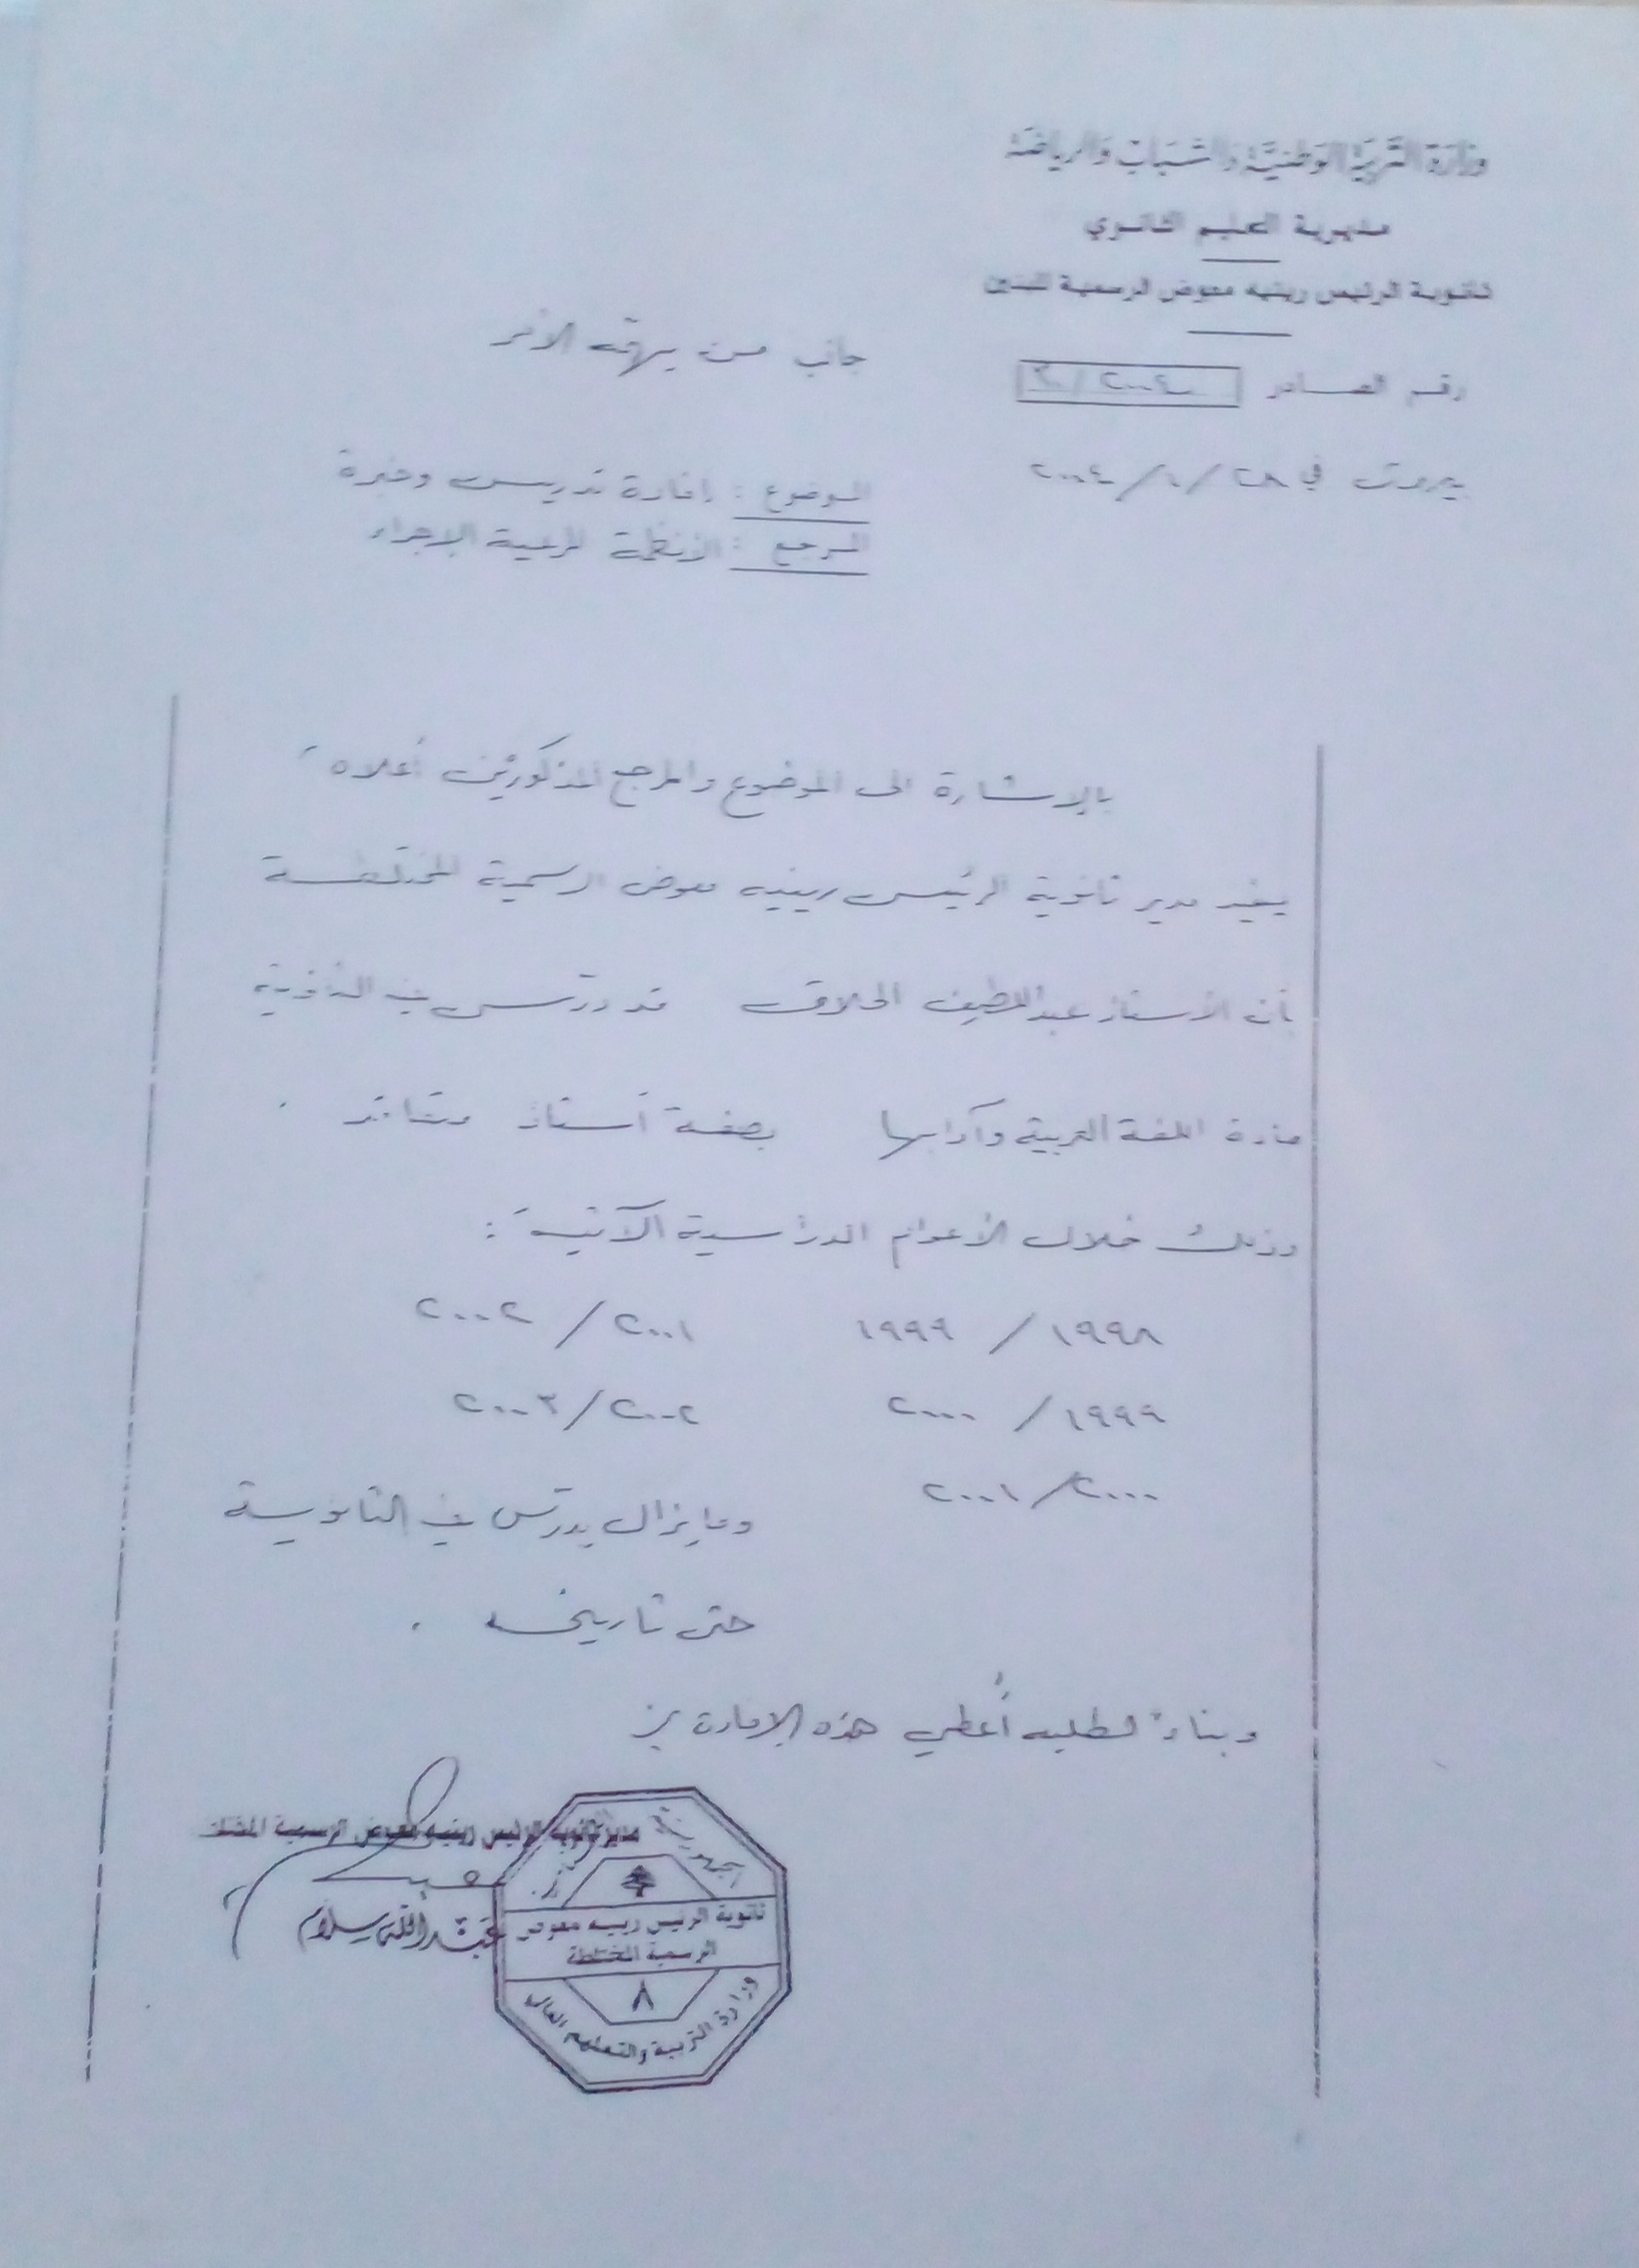 وزارة التربية الوطنية والشباب والرياضة
مديرية التعليم الثانوي
ثانوية الرئيس رينيه معوض الرسمية للبنين
جانب من يهمّه الأمر
رقم الصادر ٢٠٠٤
بيروت في ٢٨/١/٢٠٠٤
الموضوع : إفادة تدريس وخبرة
المرجع : الأنظمة المرعية الإجراء
بالإشارة الى الموضوع والمرجع المذكورَيْن أعلاه
يفيد مدير ثانوية الرئيس رينيه معوض الرسمية المختلطة
بأن الأستاذ عبد اللطيف الحلاق قد درّس في الثانوية
مادة اللغة العربية وآدابها بصفة أستاذ متعاقد .
وذلك خلال الأعوام الدراسية الآتية :
١٩٩٨ / ١٩٩٩ ٢٠٠١ / ٢٠٠٢
١٩٩٩ / ٢٠٠٠ ٢٠٠٢/٢٠٠٣
٢٠٠٠/٢٠٠١
وما يزال يدرّس في الثانوية
حتى تاريخه .
وبناءً لطلبه أُعطي هذه الإفادة
مدير ثانوية الرئيس رينيه معوض الرسمية المختلطة
عبد الله سلام
الجمهورية
ثانوية الرئيس رينيه معوض
الرسمية المختلطة
٨
وزارة التربية والتعليم العالي